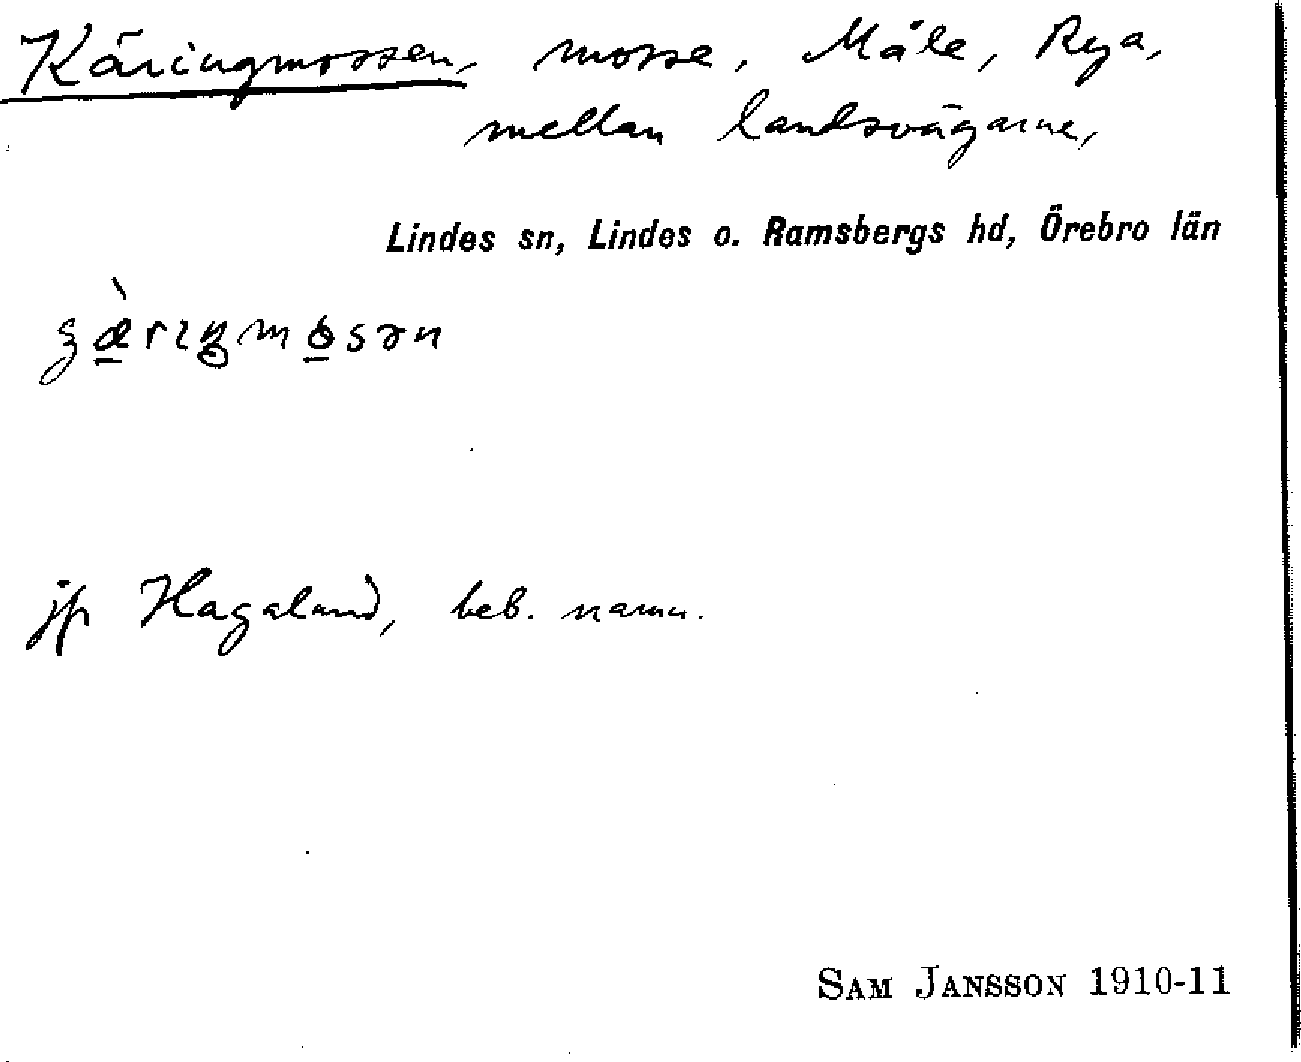 Käringmossen, mosse, Måle, Rya,
mellan landsvägarne,
Lindes sn, Lindes o. Ramsbergs hd, Örebro län
jfr Hagaland, beb. namn.
SAM JANSSON 1910-11